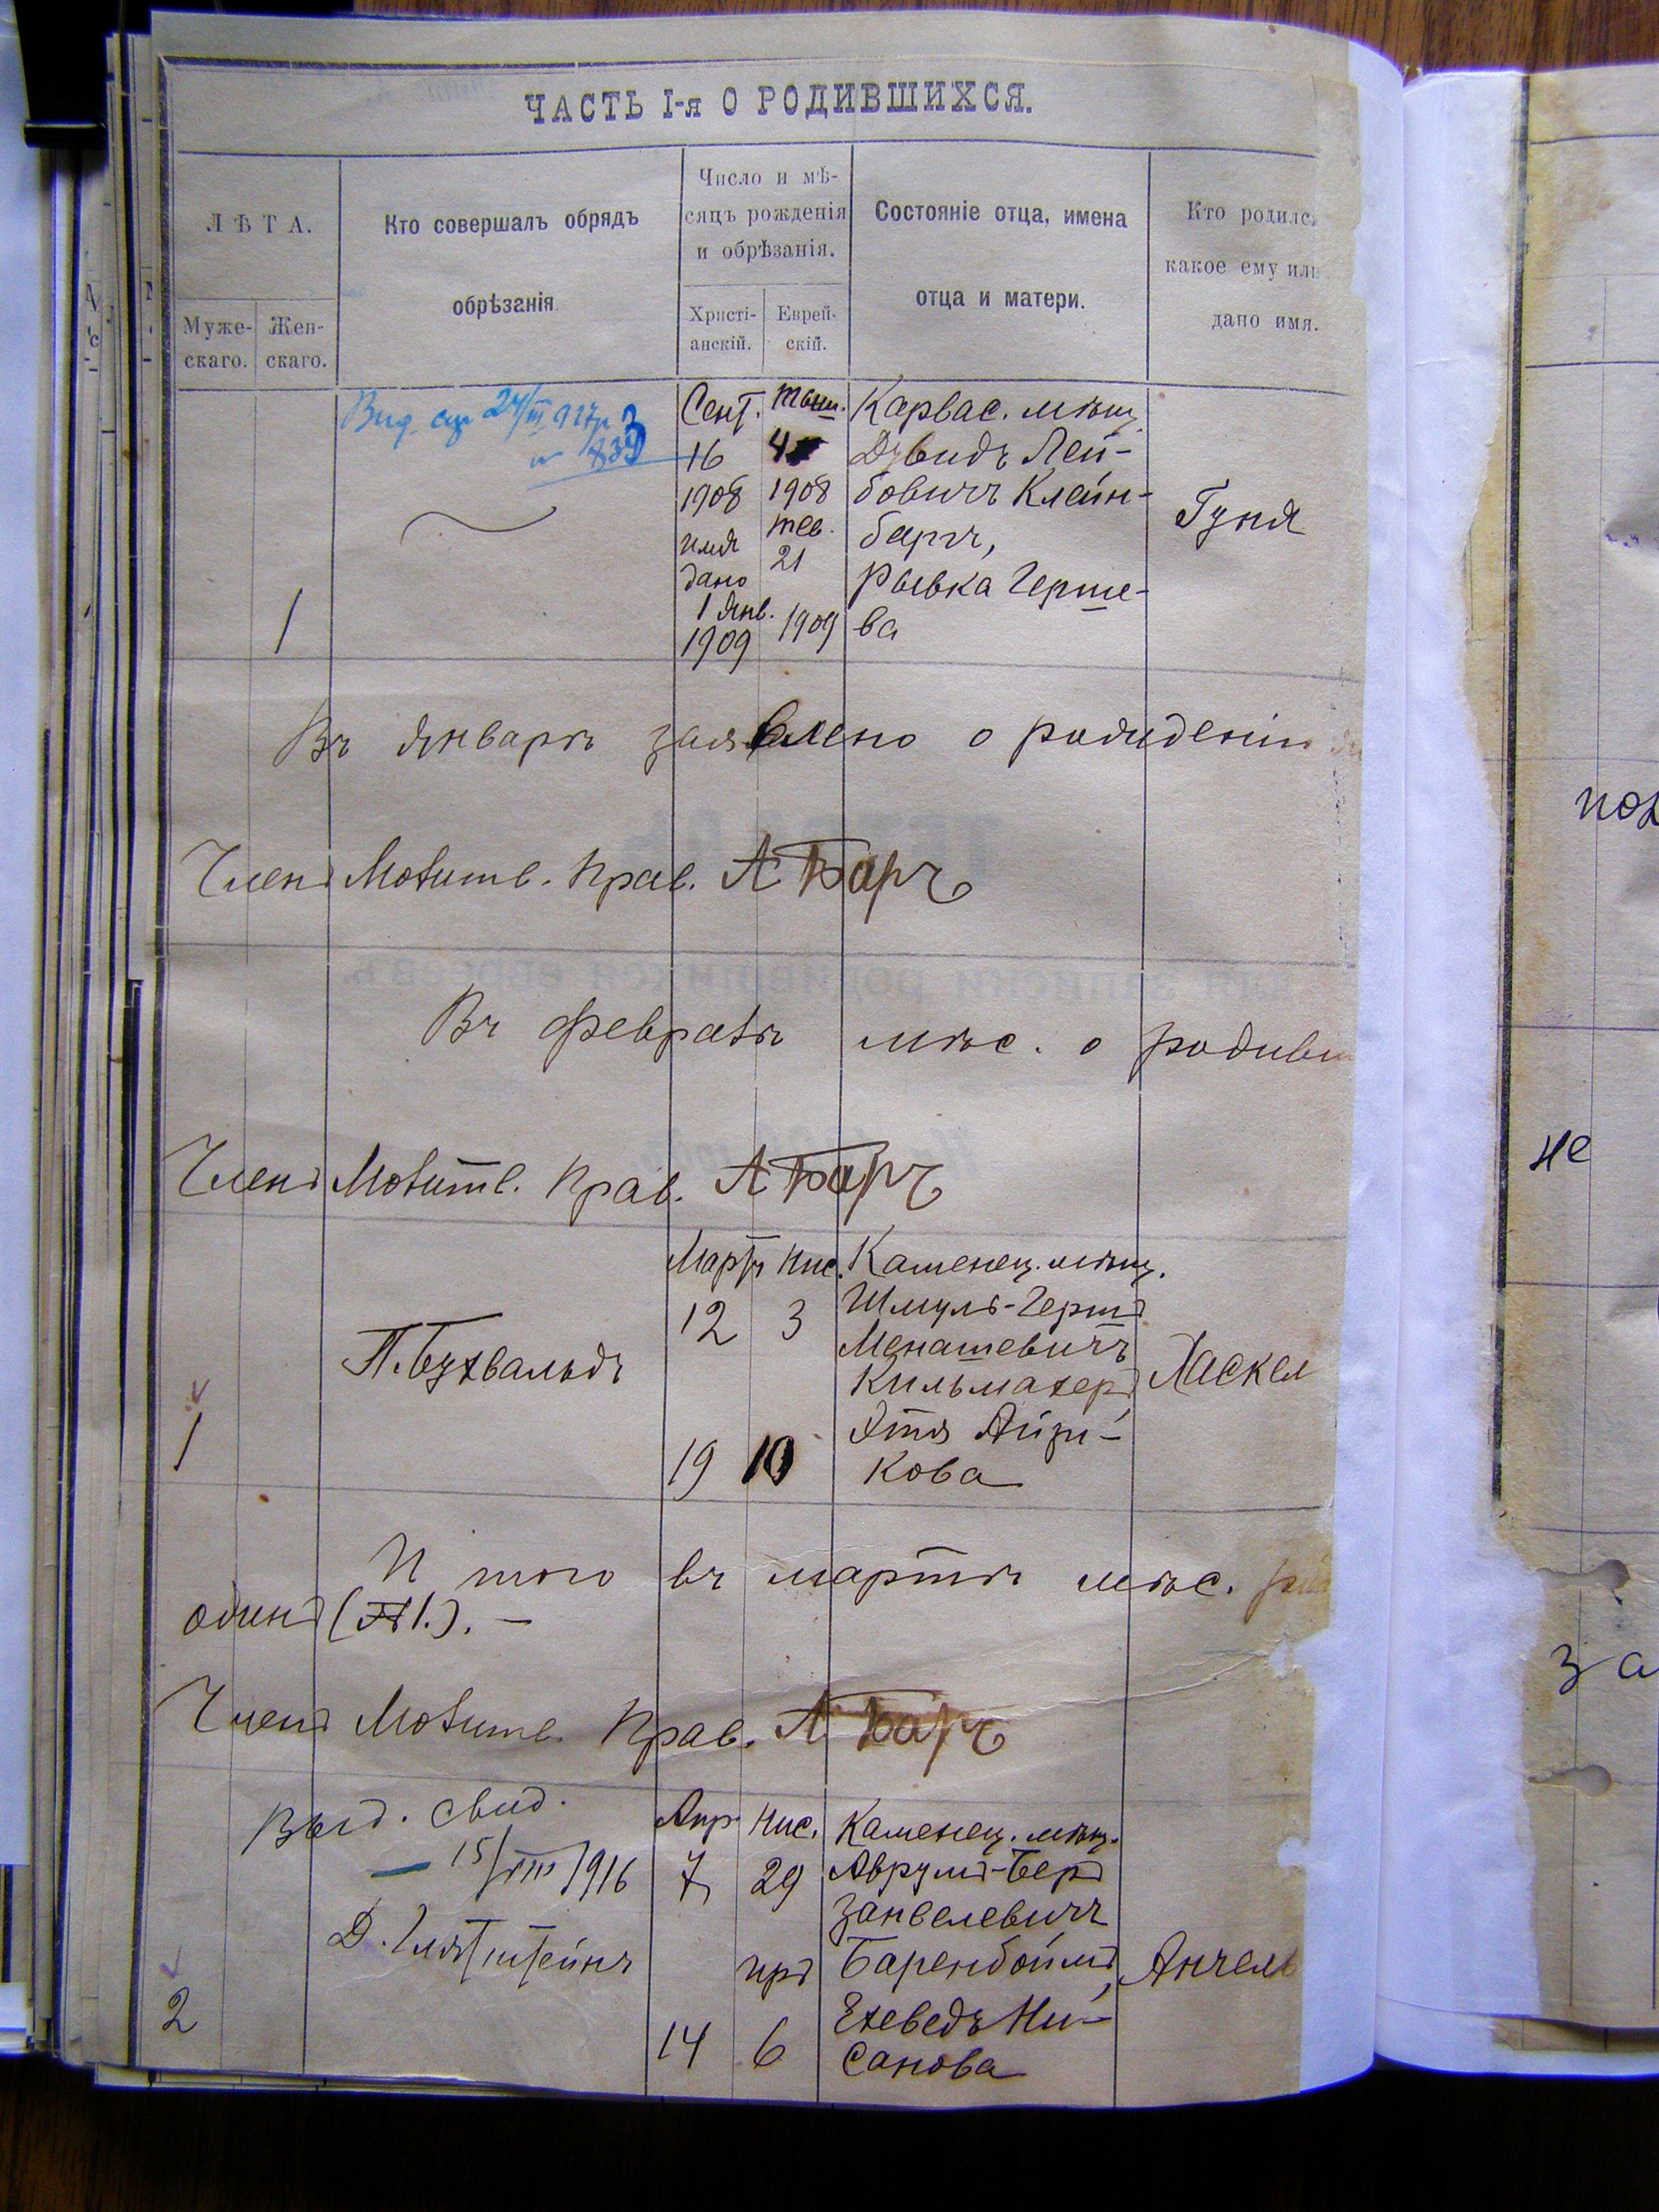 ЧАСТЬ I-я О РОДИВШИХСЯ.
ЛѢТА.
Муже-
скаго.
Жен-
скаго.
Кто совершалъ обрядъ
обрѣзанія.
Число и мѣ-
сяцъ рожденія
и обрѣзанія.
Христі-
анскій.
Еврей-
скій.
Состояніе отца, имена
отца и матери.
Кто родился
какое ему или
дано имя.
1
24/III 927 г.
№ 839
Сент.
16
1908
имя
дано
1 Янв.
1909
4
1908
тев.
21
1909
Карвас. мѣщ.
Дувидъ Лей-
бовичъ Клейн-
баргъ,
Рывка Герше-
ва
Гуня
Въ Январѣ заявлено о рожденіи
Членъ Молитв. Прав. А Барг
Въ февралѣ мѣс. о родивш
Членъ Молитв. Прав. А Барг
1
П. Бухвальдъ
Мартъ
12
19
Нис.
3
10
Каменец. мѣщ.
Шмуль-Гершъ
Менашевичъ
Кильмахеръ,
Этя Айзи-
кова
Хаскел
И того въ мартѣ мѣс.
одинъ (№ 1.). —
Членъ Молитв. Прав. А Барг
2
Выд. свид.
15/VIII 1916
Д. Глятштейнъ
Апр.
7
14
Нис.
29
иръ
6
Каменец. мѣщ.
Аврумъ-Беръ
Занвелевичъ
Баренбоймъ,
Ехеведъ Ни-
санова
Анчель
не
за